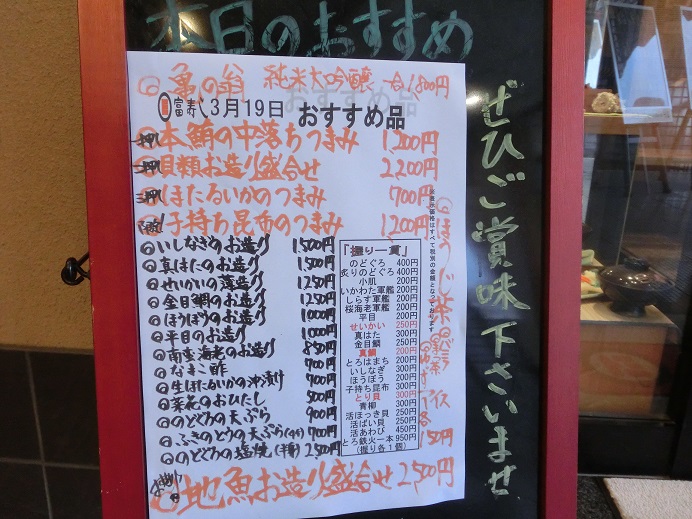 本日のおすすめ
◎亀の翁 純米大吟醸 一合1,800円
富寿し3月19日 おすすめ品
一押し 本鮪の中落ちつまみ 1,200円
二押し 貝類お造り盛合せ 2,200円
三押し ほたるいかのつまみ 700円
子持ち昆布のつまみ 1,200円
◎いしなぎのお造り 1,500円
◎真はたのお造り 1,500円
◎せいかいの薄造り 1,250円
◎金目鯛のお造り 1,250円
◎ほうぼうのお造り 1,000円
◎平目のお造り 1,000円
◎南蛮海老のお造り 850円
◎なまこ酢 700円
◎生ほたるいかの沖漬け 700円
◎菜花のおひたし 500円
◎のどぐろの天ぷら 900円
◎ふきのとうの天ぷら 700円
◎のどぐろの塩焼(半身) 2,500円
地魚お造り盛合せ 2,500円
「握り一貫」
のどぐろ 400円
炙りのどぐろ 400円
小肌 200円
いかわた軍艦 200円
しらす軍艦 200円
桜海老軍艦 200円
平目 200円
せいかい 250円
真はた 300円
金目鯛 250円
真鯛 200円
とろはまち 200円
いしなぎ 300円
ほうぼう 200円
子持ち昆布 300円
とり貝 300円
青柳 300円
活ほっき貝 250円
活ばい貝 250円
活あわび 450円
とろ鉄火一本 950円
(握り各1個)
◎ほうじ茶
アイス
各150円
ぜひご賞味下さいませ